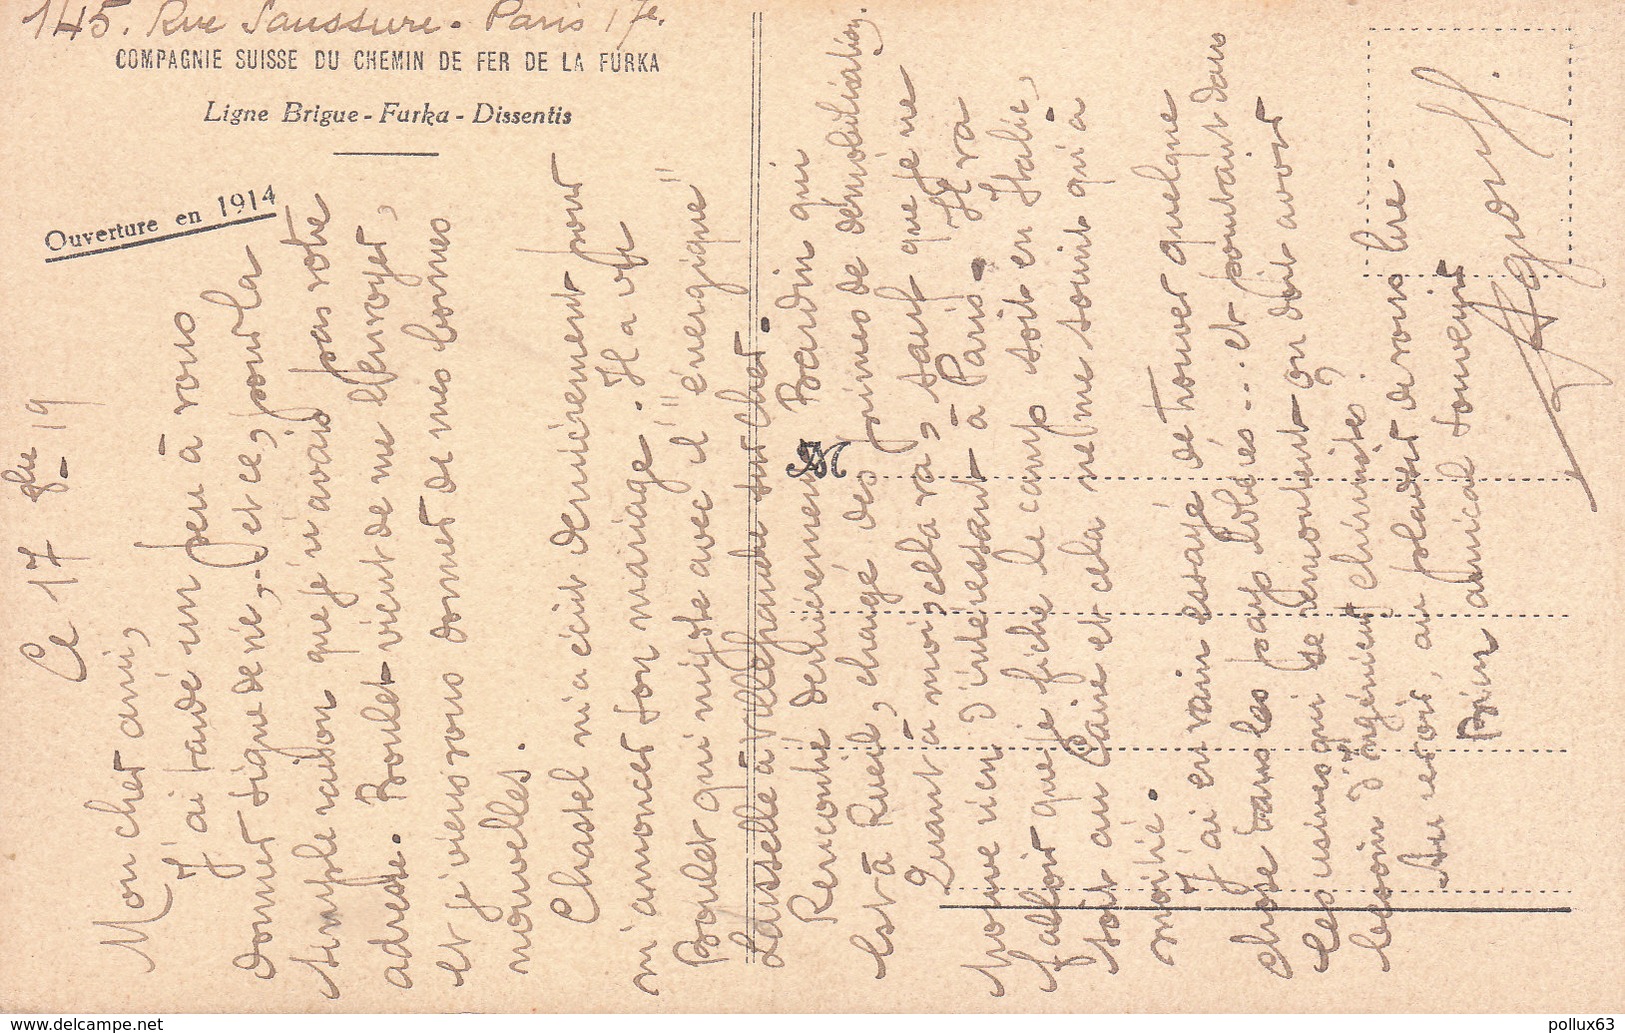 145. Rue Saussure - Paris 17e.
COMPAGNIE SUISSE DU CHEMIN DE FER DE LA FURKA
Ligne Brigue - Furka - Dissentis
Ouverture en 1914
Ce 17 9bre 19
Mon cher ami,
J'ai tardé un peu à vous
donner signe de vie, - et ce, pour la
simple raison que je n'avais pas votre
adresse. Boulet vient de me l'envoyer,
et je viens vous donner de mes bonnes
nouvelles.
Chastel m'a écrit dernièrement pour
m'annoncer son mariage. Il a vu
Boulet qui insiste avec "énergique"
à Villefranche sur Cher.
Rencontré dernièrement Bardin qui
est à Rueil, chargé des primes de démobilisation.
Quant à moi, cela va, sauf que je ne
trouve rien d'intéressant à Paris. Il va
falloir que je fiche le camp soit en Italie,
soit au Caire et cela ne me sourit qu'à
moitié.
J'ai en vain essayé de trouver quelque
chose dans les pays libérés... et pourtant dans
les usines qui se remontent, on doit avoir
besoin d'"ingénieurs chimistes".
Au revoir, au plaisir de vous lire.
Bien amical souvenir
delcampe.net
pollux63